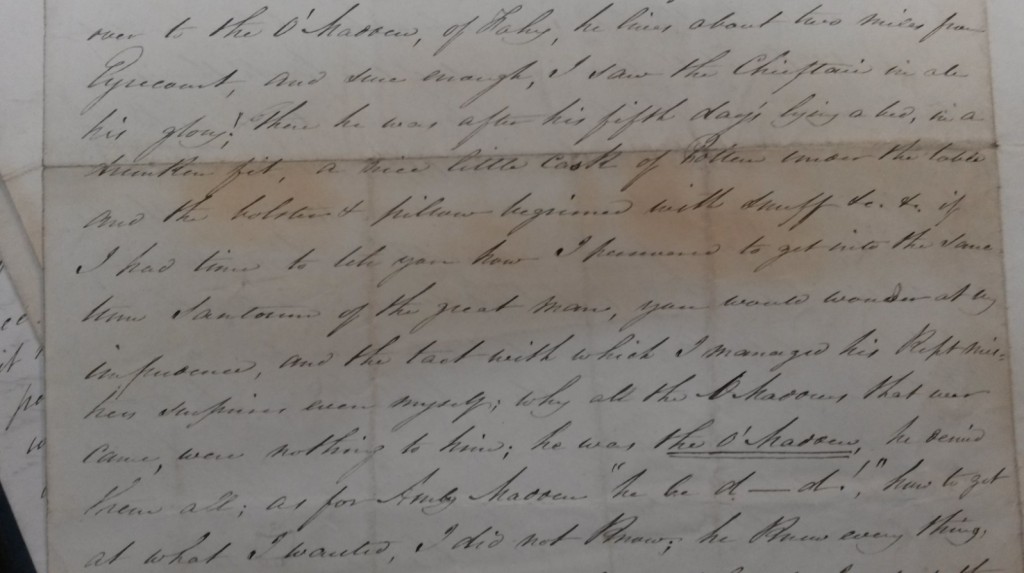 over to the O'Madden, of Fahy, he lives about two miles from
Eyrecourt, and sure enough, I saw the Chieftain in all
his glory! There he was after his fifth day's lying a bed, in a
drunken fit, a nice little cask of Potteen under the table
and the bolster & pillow begrimed with snuff &c. &c. if
I had time to tell you how I persevered to get into the Sanc
tum Sanctorum of the great man, you would wonder at my
impudence, and the tact with which I managed his
surprises even myself; why all the O'Maddens that ever
came, were nothing to him; he was the O'Madden, he denied
them all; as for Amby Madden "he be d—d!", how to get
at what I wanted, I did not Know; he Knew every thing,